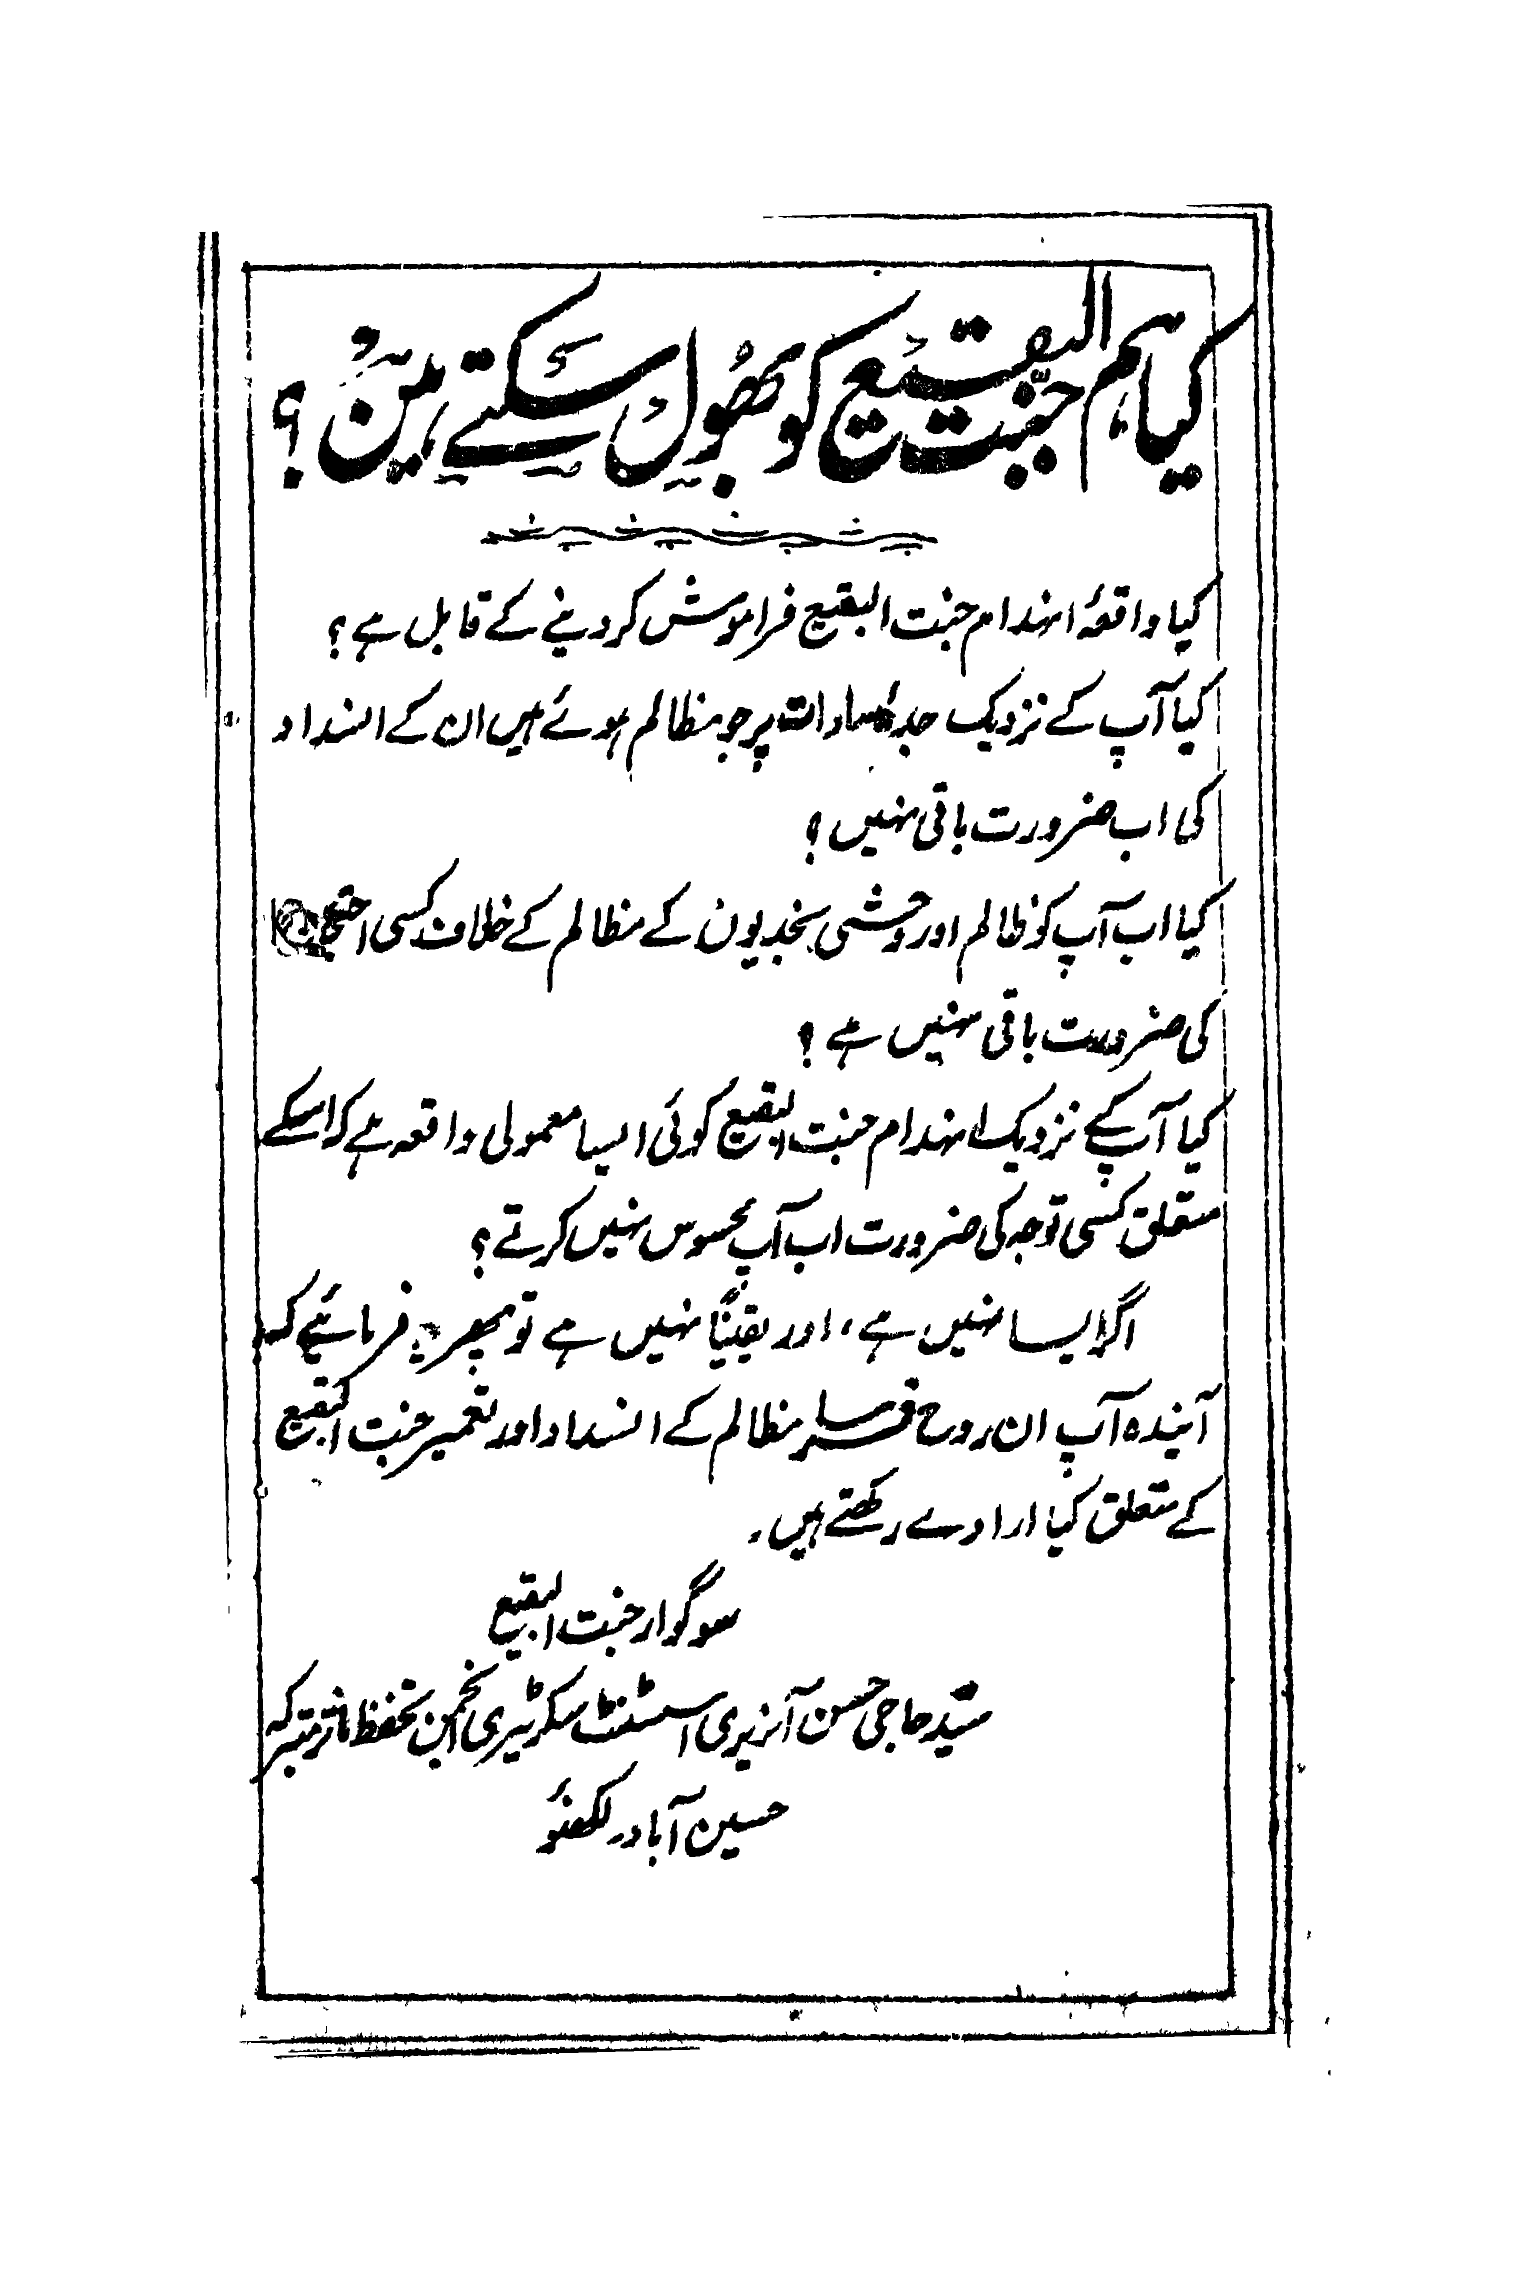 کیا ہم جنّت البقیع کو بھول سکتے ہین ؟
کیا واقعۂ انہدام جنت البقیع فراموش کر دینے کے قابل ہے ؟
کیا آپ کے نزدیک جدۂ سادات پر جو مظالم ہوئے ہیں ان کے انسداد
کی اب ضرورت باقی نہیں ؟
کیا اب آپ کو ظالم اور وحشی نجدیون کے مظالم کے خلاف کسی احتجاج
کی ضرورت باقی نہیں ہے ؟
کیا آپکے نزدیک انہدام جنت البقیع کوئی ایسا معمولی واقعہ ہے کہ اسکے
متعلق کسی توجہ کی ضرورت اب آپ محسوس نہیں کرتے ؟
اگر ایسا نہیں ہے، اور یقیناً نہیں ہے تو پھر یہ فرمائیے کہ
آیندہ آپ ان روح فرسا مظالم کے انسداد اور تعمیر جنت البقیع
کے متعلق کیا ارادے رکھتے ہیں۔
سوگوار جنت البقیع
سیّد حاجی حسن آنریری اسسٹنٹ سکرٹیری انجمن تحفظ مآثر متبرکہ
حسین آباد۔ لکھنؤ